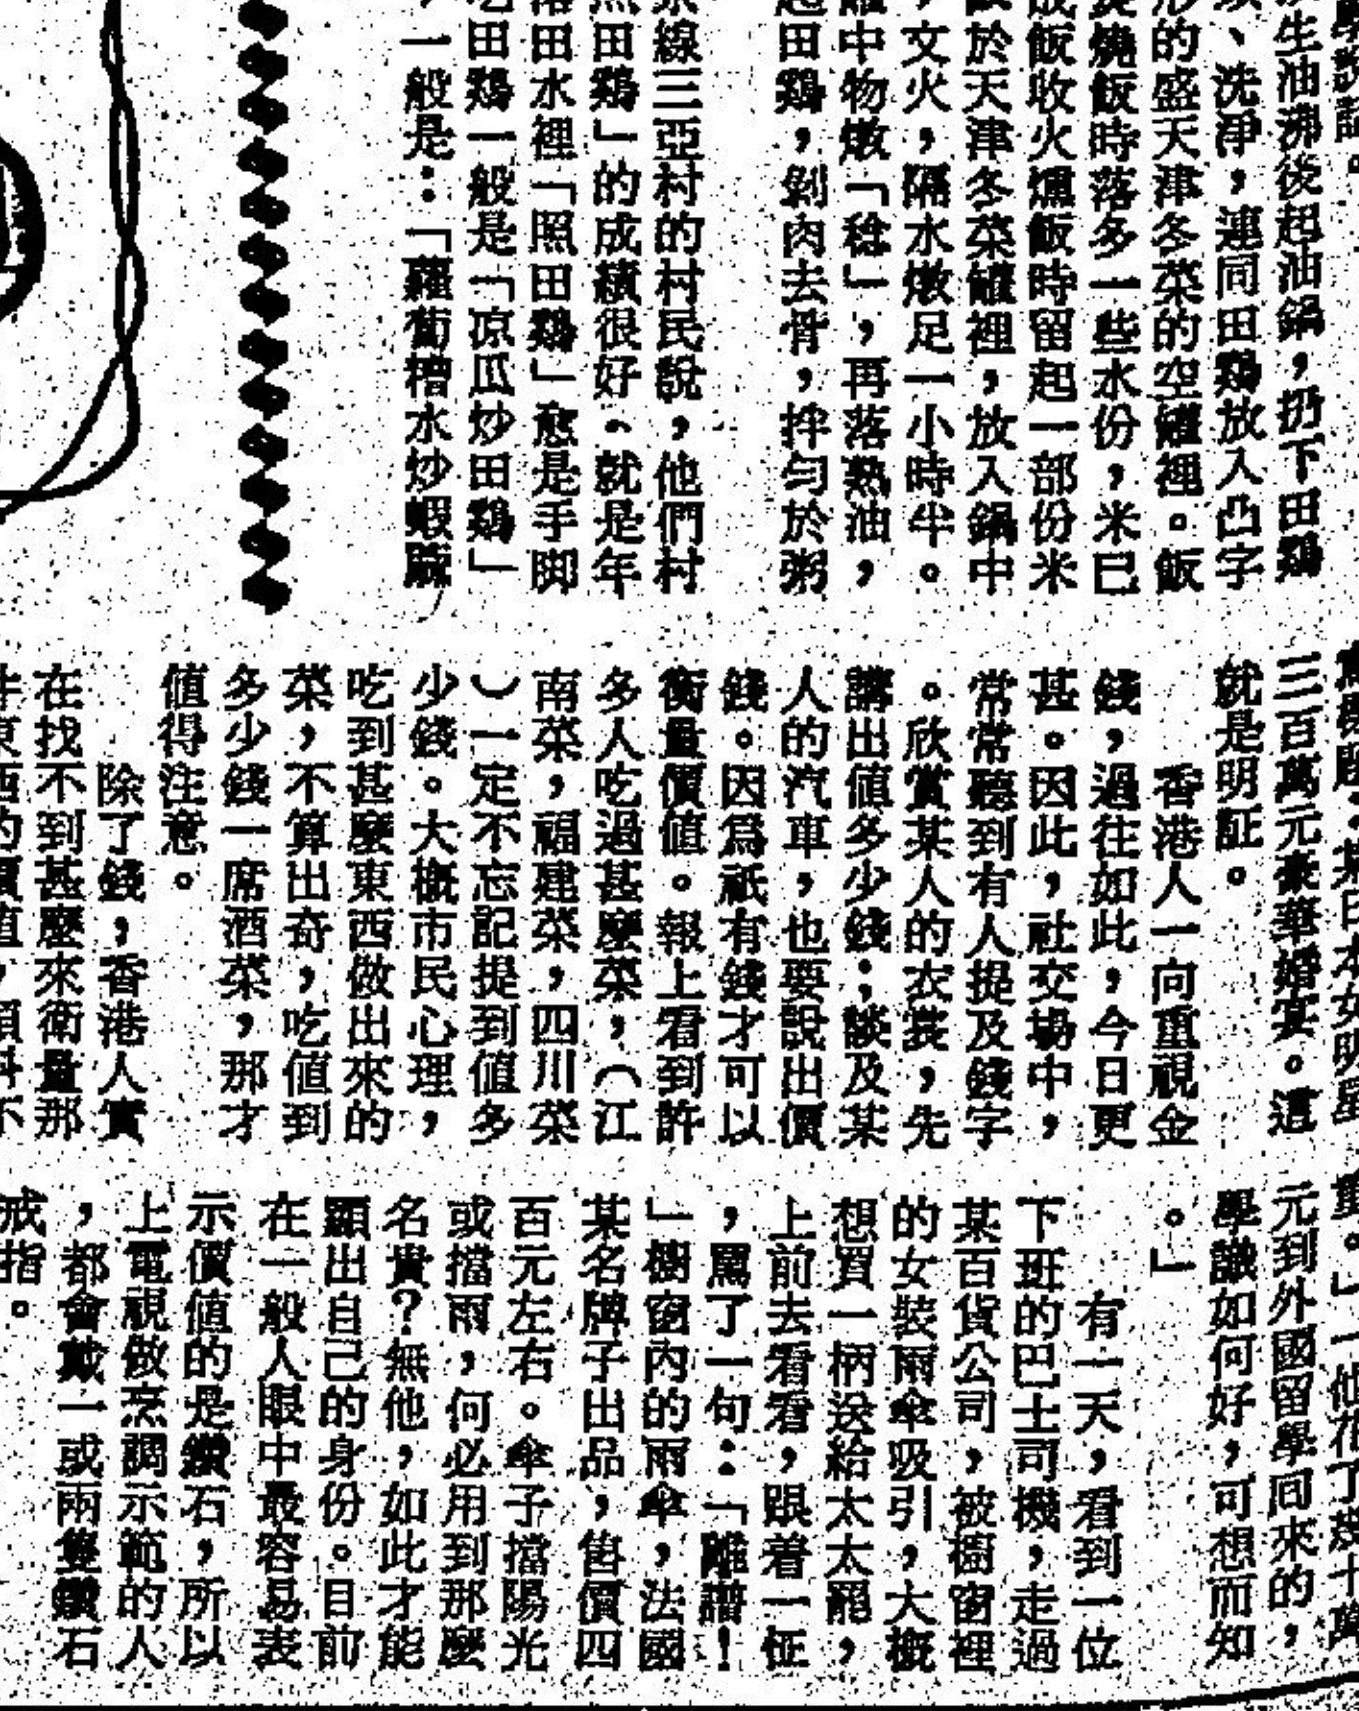 學說話。
生油沸後起油鍋，扔下田鷄
、洗淨，連同田鷄放入凸字
形的盛天津冬菜的空罐裡。飯
燒飯時落多一些水份，米已
成飯收火燻飯時留起一部份米
飯於天津冬菜罐裡，放入鍋中
，文火，隔水燉足一小時半。
罐中物燉「稔」，再落熟油，
起田鷄，剝肉去骨，拌匀於粥
線三亞村的村民說，他們村
照田鷄」的成績很好。就是年
落田水裡「照田鷄」愈是手脚
吃田鷄一般是「凉瓜炒田鷄」
，一般是：「蘿蔔糟水炒蝦
某日本女明星
三百萬元豪華婚宴。這
就是明証。
香港人一向重視金
錢，過往如此，今日更
甚。因此，社交場中，
常常聽到有人提及錢字
。欣賞某人的衣裳，先
講出値多少錢；談及某
人的汽車，也要說出價
錢。因爲祇有錢才可以
衡量價値。報上看到許
多人吃過甚麼菜，（江
南菜，福建菜，四川菜
）一定不忘記提到値多
少錢。大概市民心理，
吃到甚麼東西做出來的
菜，不算出奇，吃値到
多少錢一席酒菜，那才
値得注意。
除了錢，香港人實
在找不到甚麼來衛量那
件東西的價值，顏料不
重。」一他花了幾十萬
元到外國留學回來的，
學識如何好，可想而知
。」
有一天，看到一位
下班的巴士司機，走過
某百貨公司，被櫥窗裡
的女裝雨傘吸引，大概
想買一柄送給太太罷，
上前去看看，跟着一怔
，罵了一句：「離譜！
」櫥窗內的雨傘，法國
某名牌子出品，售價四
百元左右。傘子擋陽光
或擋雨，何必用到那麼
名貴？無他，如此才能
顯出自己的身份。目前
在一般人眼中最容易表
示價値的是鑽石，所以
上電視做烹調示範的人
，都會戴一或兩隻鑽石
戒指。